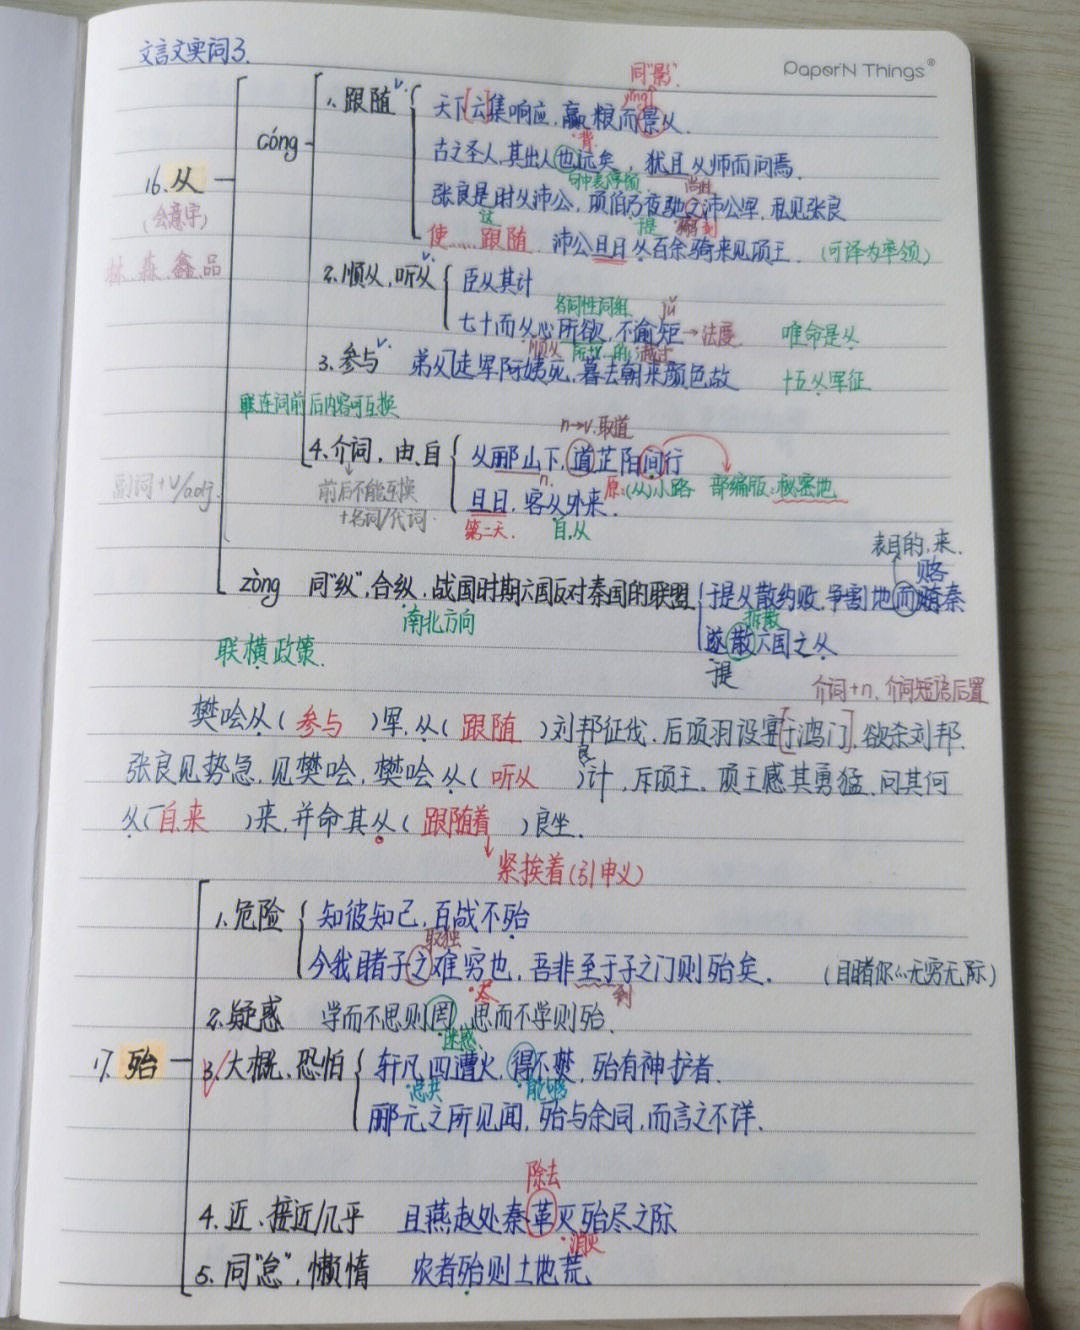 文言文实词3.
PaperN Things®
同"影".
cóng
1.跟随 v.
天下[云]集响应,赢粮而景从.
yǐng
背
古之圣人,其出人也远矣,犹且从师而问焉.
句中表停顿 尚且
16.从
(会意字)
张良是时从沛公,项伯乃夜驰之沛公军,私见张良
这 于是
使……跟随 沛公旦日从百余骑来见项王.(可译为率领)
林、森、鑫、品
2.顺从,听从 v.
臣从其计
名词性词组 jǔ
七十而从心所欲,不逾矩→法度. 唯命是从
顺从 所以…的 越过
3.参与 v.
弟从走军阿姨死,暮去朝来颜色故 十五从军征
连词前后内容可互换
n→v.取道
4.介词,由、自
从郦山下,道芷阳间行
副词+v/adj
前后不能互换
+名词/代词.
n. 原:(从)小路 部编版:秘密地
旦日,客从外来.
第二天. 自,从
表目的,来.
赂
zòng 同"纵",合纵,战国时期六国反对秦国的联盟
于是从散约败,争割地而赂秦
南北方向
拆散
联横政策.
遂散六国之从
于是
介词+n、介词短语后置
樊哙从(参与)军,从(跟随)刘邦征伐,后项羽设宴[于鸿门],欲杀刘邦.
良
张良见势急,见樊哙,樊哙从(听从)计,斥项王.项王感其勇猛,问其何
从(自来)来,并命其从(跟随着)良坐.
紧挨着(引申义)
1.危险
知彼知己,百战不殆
取独
今我睹子之难穷也,吾非至于子之门则殆矣.(目睹你心无穷无际)
尽 到
2.疑惑 学而不思则罔,思而不学则殆.
迷惑.
17.殆
3.大概、恐怕
轩凡四遭火,得不焚,殆有神护者.
总共 能够
郦元之所见闻,殆与余同,而言之不详.
除去
4.近、接近/几乎 且燕赵处秦革灭殆尽之际
消灭
5.同"怠",懒惰 农者殆则土地荒